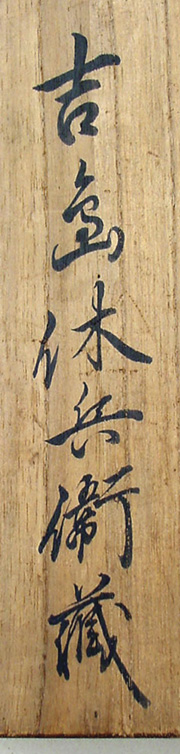 吉島休兵衛蔵